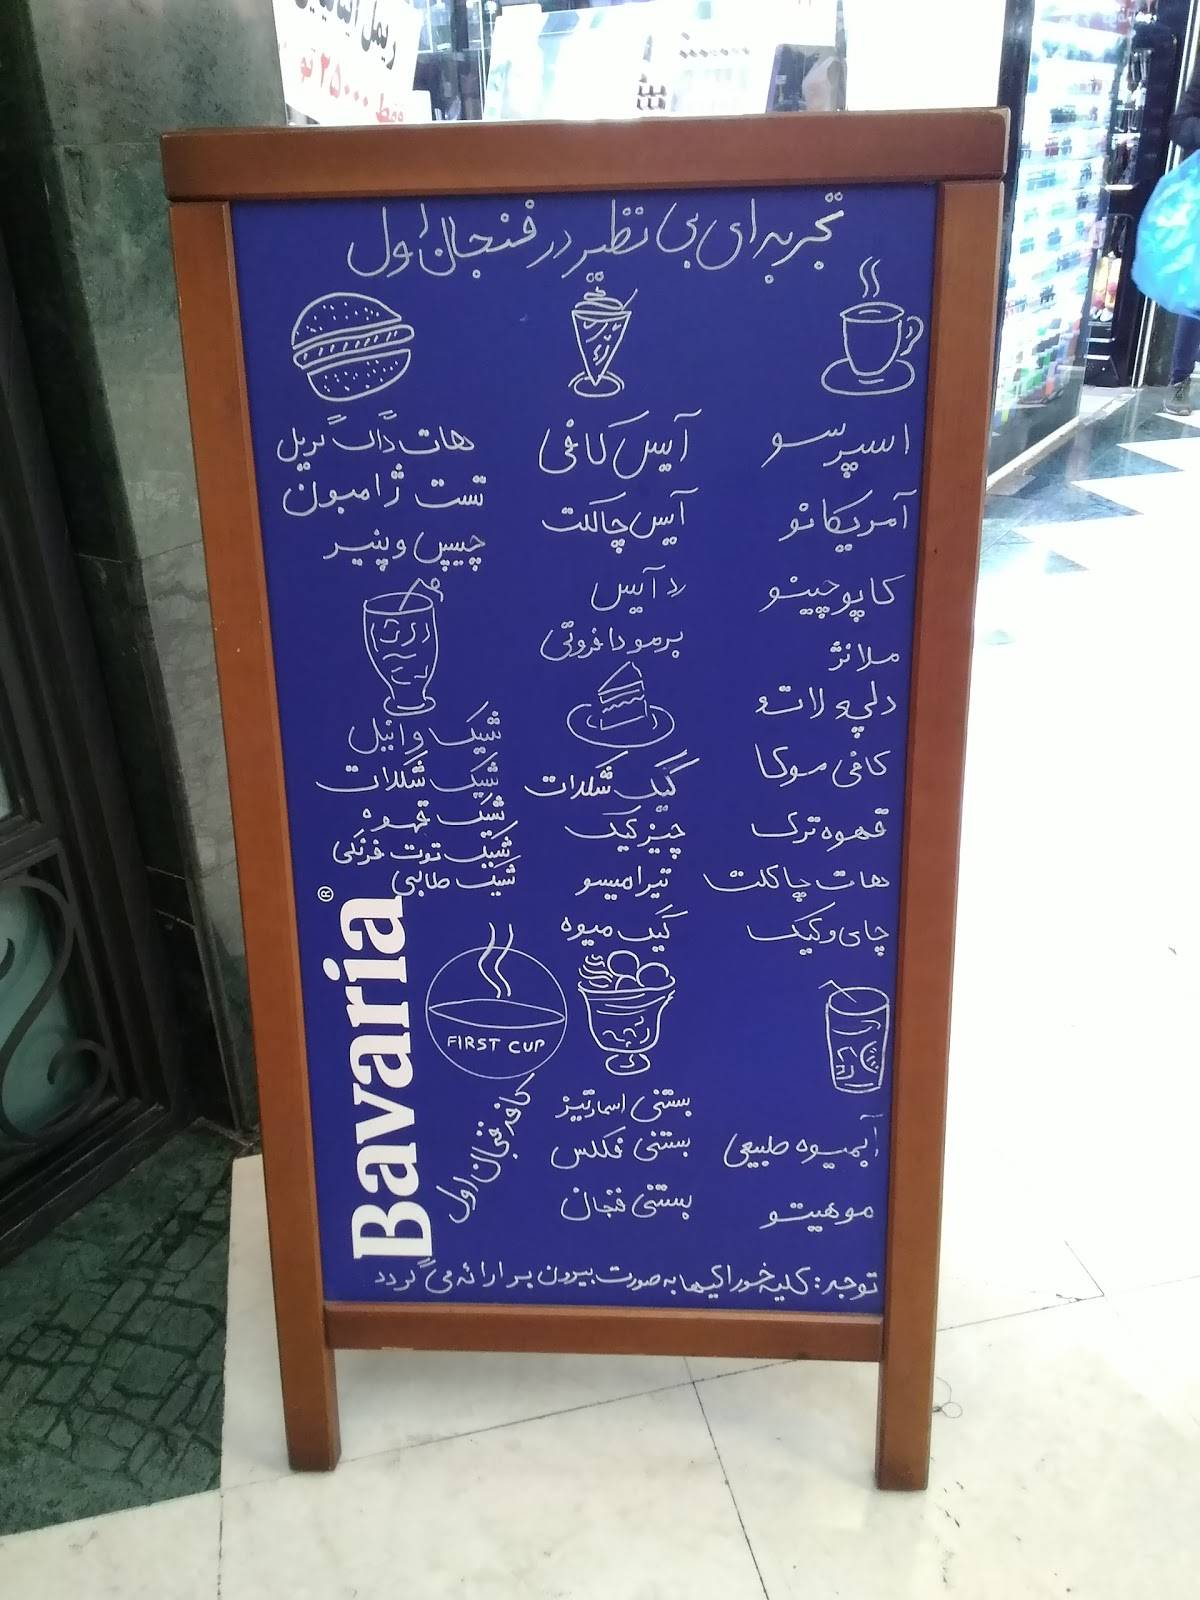 تجربه ای بی نظیر در فنجان اول
اسپرسو
آمریکانو
کاپوچینو
ملانژ
دلپه لاته
کافی موکا
قهوه ترک
هات چاکلت
چای و کیک
آبمیوه طبیعی
موهیتو
آیس کافی
آیس چاکلت
رد آیس
برمودا فروتی
کیک شکلات
چیز کیک
تیرامیسو
کیک میوه
بستنی اسمارتیز
بستنی فکلس
بستنی فنجان
هات داگ گریل
تست ژامبون
چیپس و پنیر
شیک وانیل
شیک شکلات
شیک قهوه
شیک توت فرنگی
شیک طالبی
FIRST CUP
کافه فنجان اول
Bavaria®
توجه: کلیه خوراکیها به صورت بیرون بر ارائه می گردد
ریمل
فقط ۲۵۰۰۰ تو